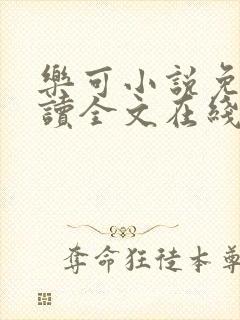 樂可小說免
讀全文在綫
奪命狂徒本尊